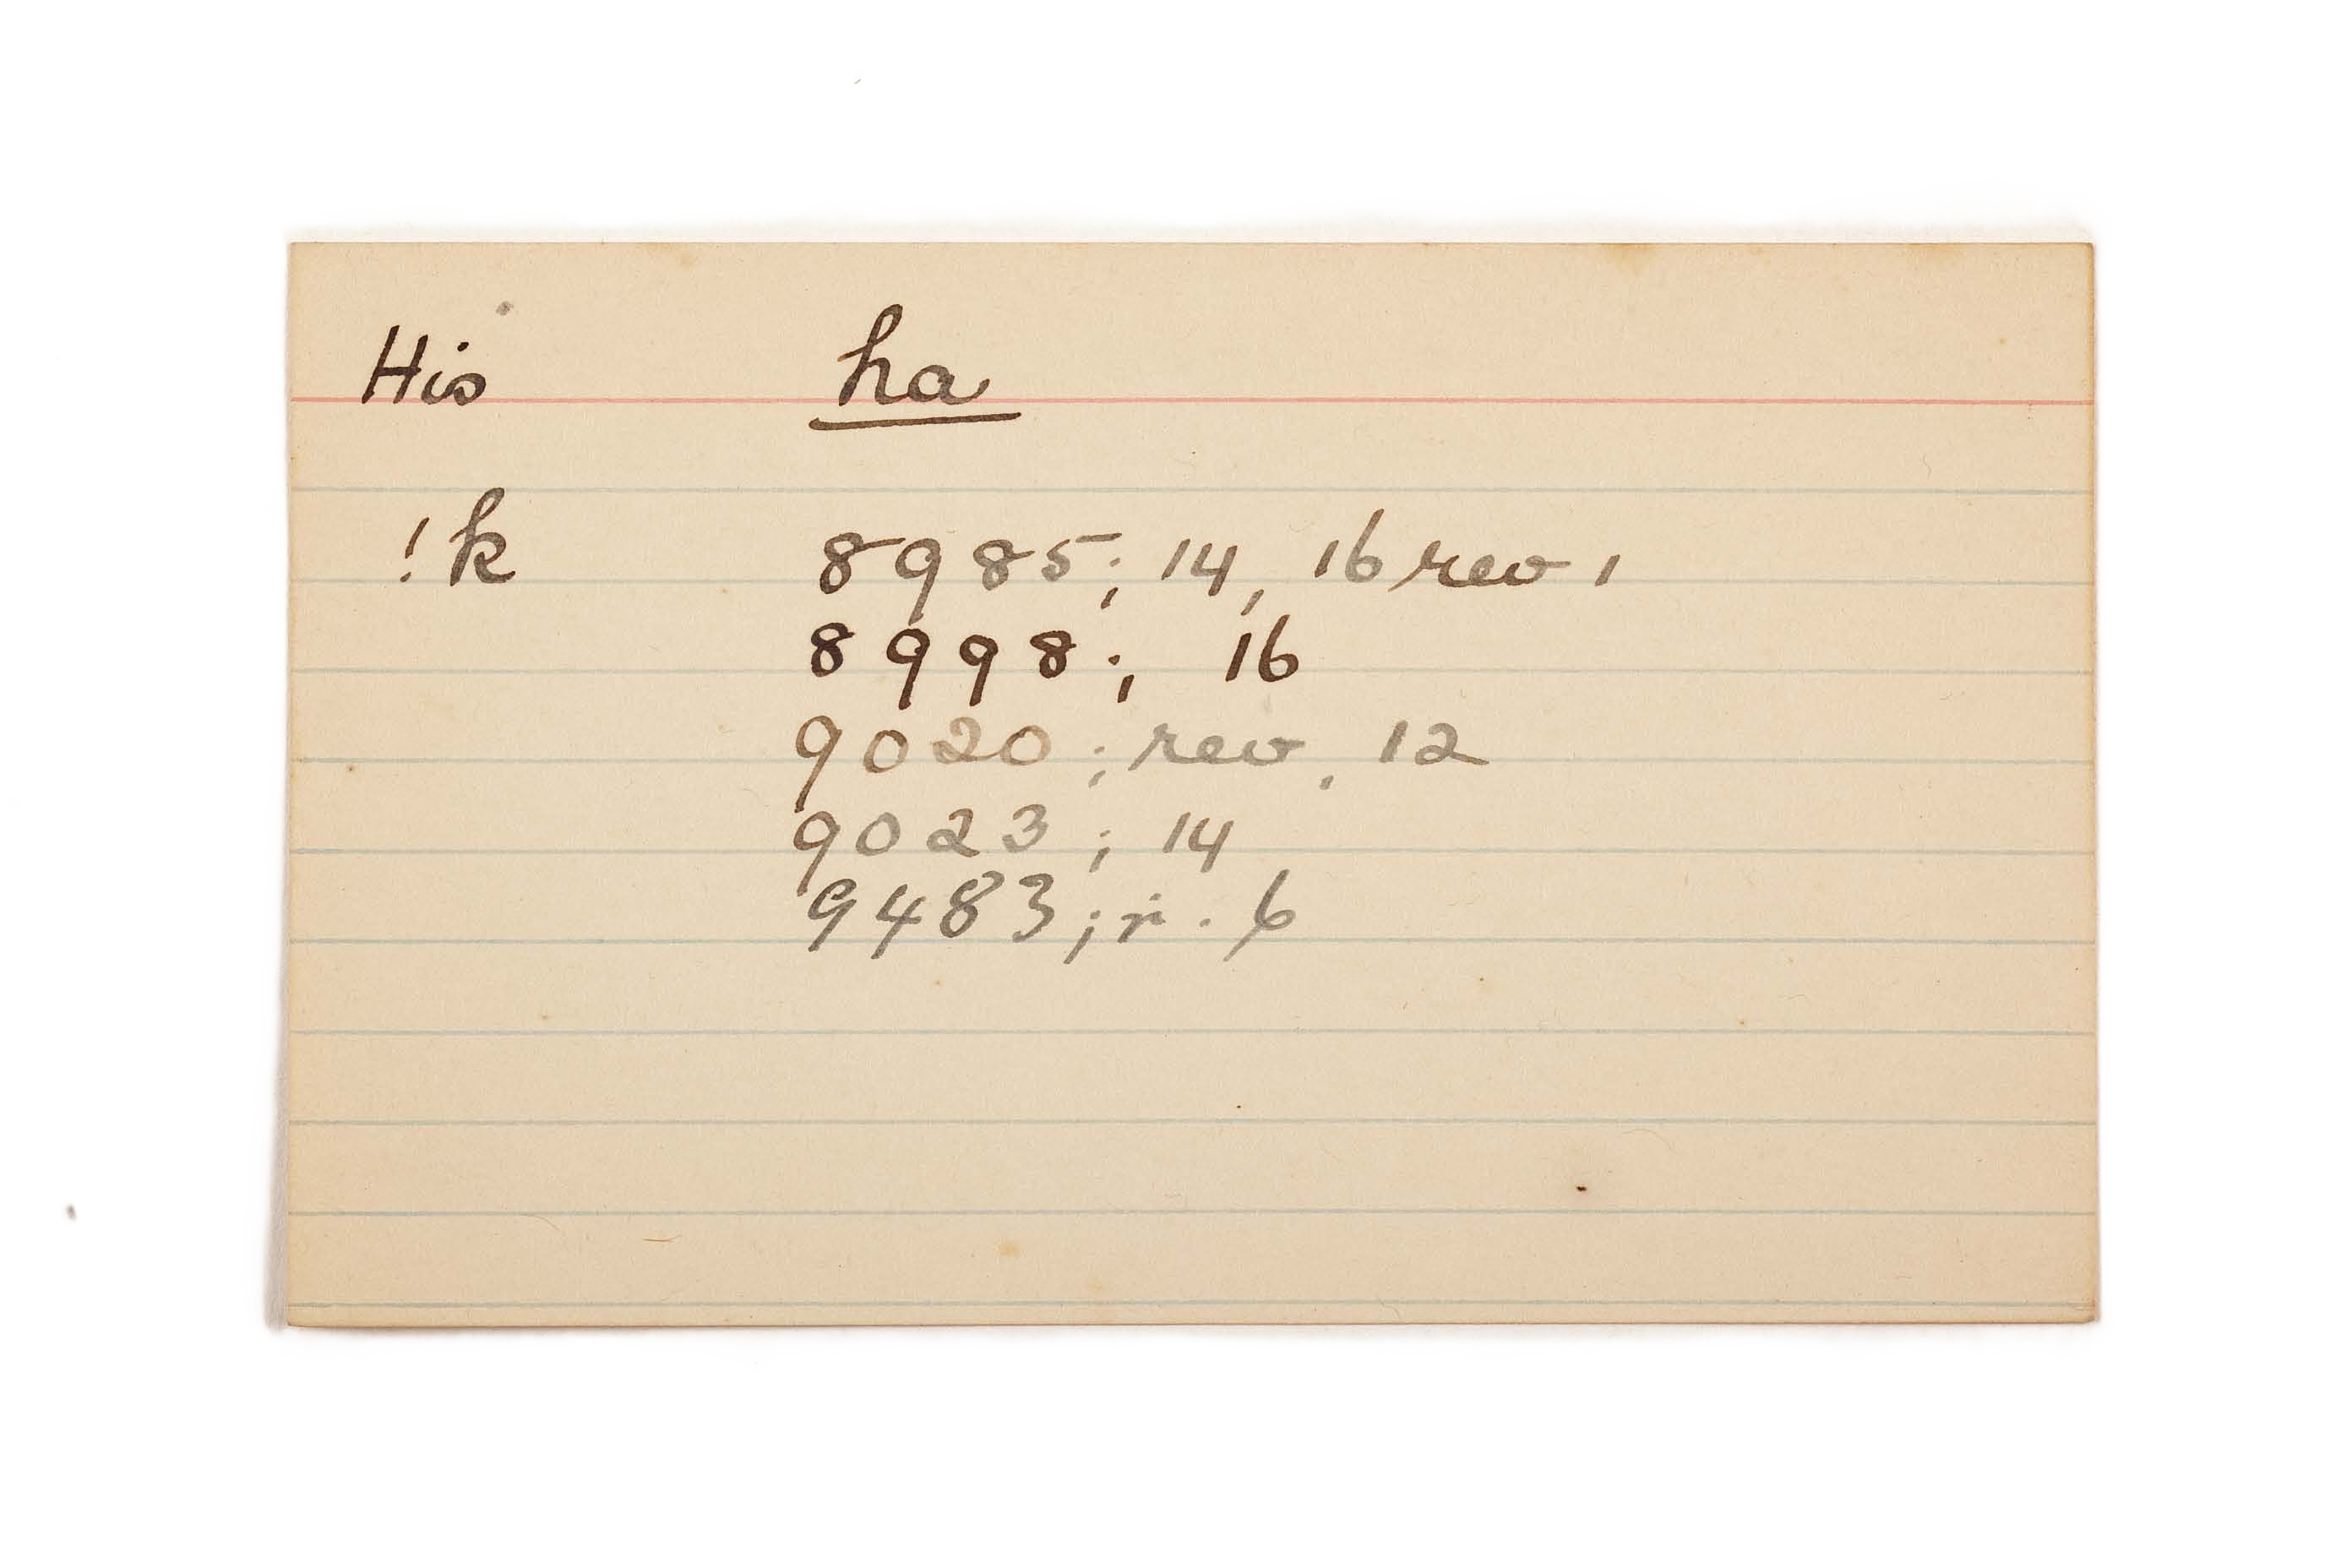 His ha
!k 8985; 14, 16 rev 1
8998; 16
9020; rev. 12
9023; 14
9483; r. 6